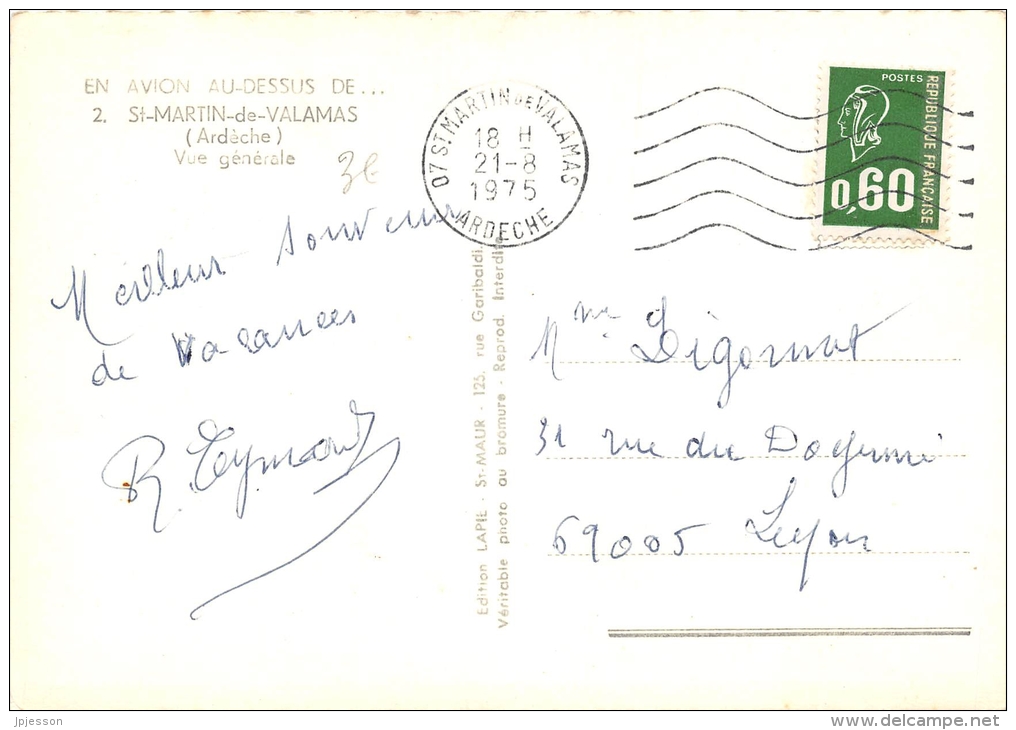 EN AVION AU-DESSUS DE...
2. St-MARTIN-de-VALAMAS
(Ardèche)
Vue générale
3€
07 ST MARTIN DE VALAMAS
18 H
21-8
1975
ARDECHE
POSTES
REPUBLIQUE FRANÇAISE
0,60
Meilleur Souvenir
de Vacances
R. Eymard
Edition LAPIE - St-MAUR - 125, rue Garibaldi
Véritable photo au bromure - Reprod. Interdite
Mme Digonnat
31 rue du Doyenné
69005 Lyon
jpjesson
www.delcampe.net